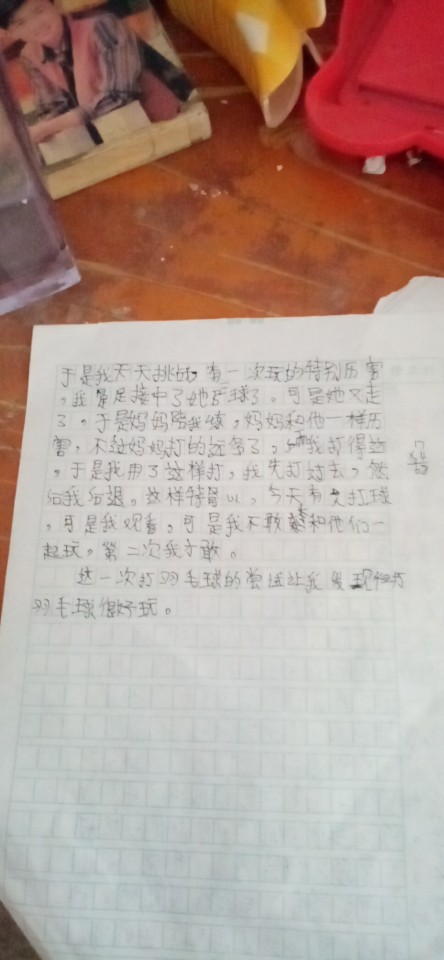 于是我天天挑战,有一次玩的特别厉害
,我 是 接中了她 球了。可是她又走
了。于是妈妈陪我练,妈妈和他一样厉
害,不过妈妈打的近多了, 我打得近
,于是我用了这样打,我先打过去,然
后我后退。这样 以,今天有人打球
,可是我观看。可是我不敢 和他们一
起玩。第二次我才敢。
这一次打羽毛球的尝 让我发现 打
羽毛球很好玩。